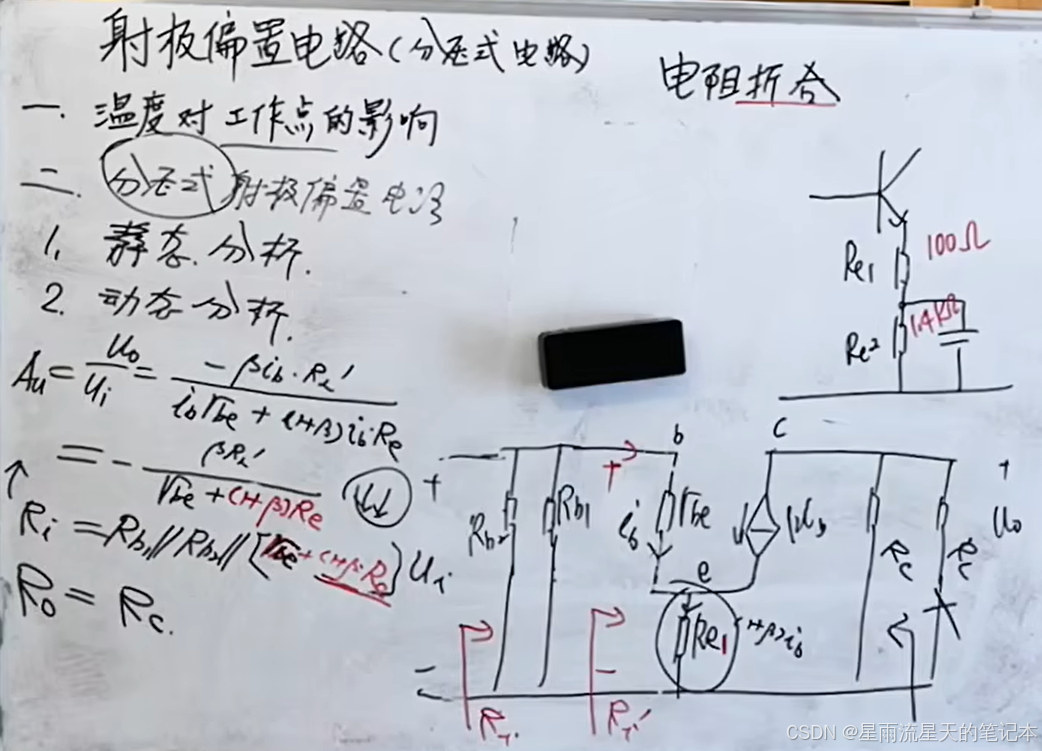 射极偏置电路(分压式电路)
电阻折合
一. 温度对工作点的影响
二. 分压式射极偏置电路
1. 静态分析.
2. 动态分析.
Au = Uo/Ui = -βib·RL′ / ibrbe + (1+β)ib·Re
= - βRL′ / rbe + (1+β)Re
↑
↓↓
Ri = Rb1 // Rb2 // [rbe + (1+β)Re]
Ro = Rc.
Re1 100Ω
Re2 1.4KΩ
b
c
+
+
+
Rb2
Rb1
ib
rbe
βib
Rc
Uo
Ui
e
Re1
(1+β)ib
-
-
Ri.
Ri′
CSDN @星雨流星天的笔记本